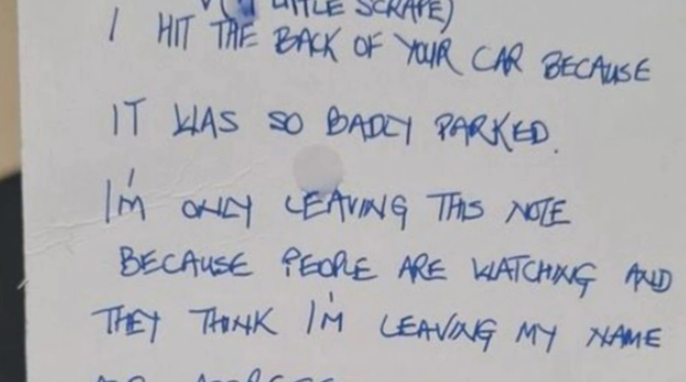 LITTLE SCRAPE)
I HIT THE BACK OF YOUR CAR BECAUSE
IT WAS SO BADLY PARKED.
I'M ONLY LEAVING THIS NOTE
BECAUSE PEOPLE ARE WATCHING AND
THEY THINK I'M LEAVING MY NAME